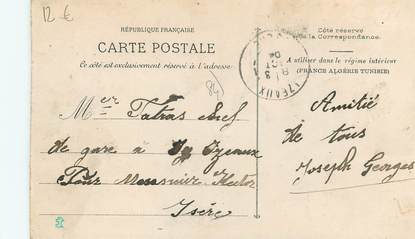 12 €
RÉPUBLIQUE FRANÇAISE
CARTE POSTALE
Ce côté est exclusivement réservé à l'adresse.
Côté réservé
à la Correspondance.
A utiliser dans le régime intérieur
(FRANCE ALGÉRIE TUNISIE)
Mer Tatras chef
de gare à Izeaux
Pour Hector
Isère
Amitié
de tous
Joseph Georges